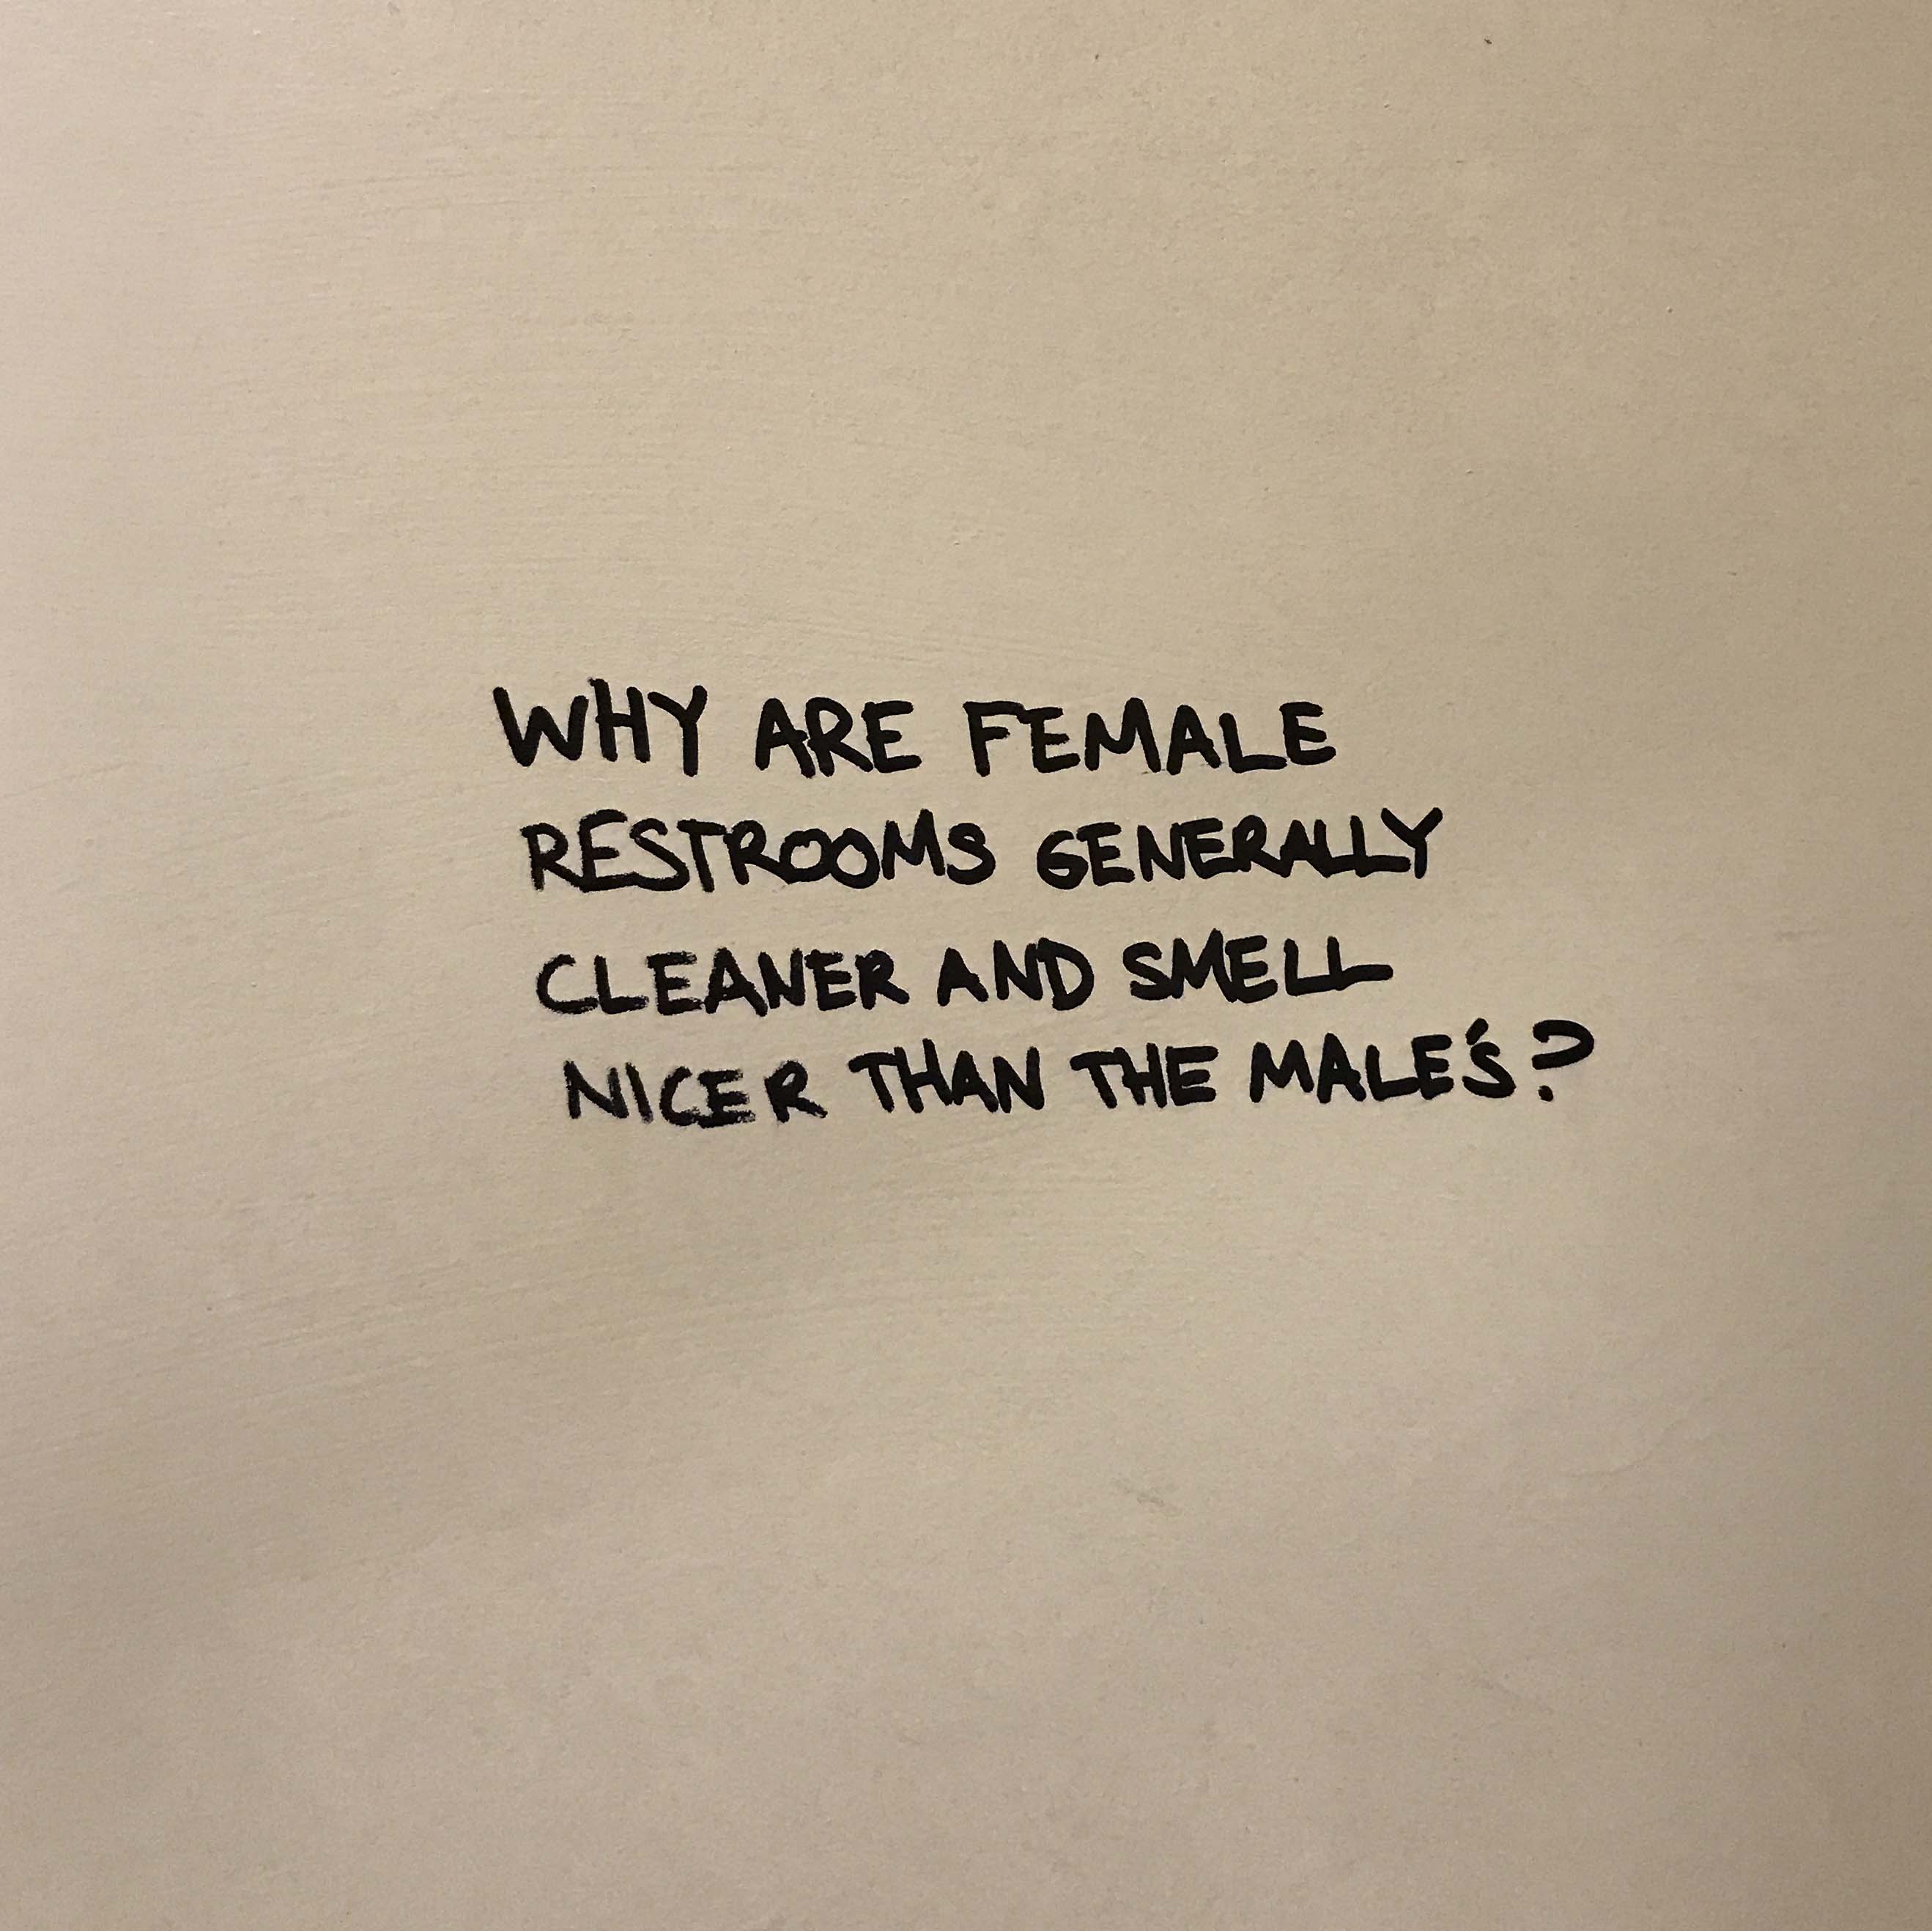 WHY ARE FEMALE
RESTROOMS GENERALLY
CLEANER AND SMELL
NICER THAN THE MALE'S?